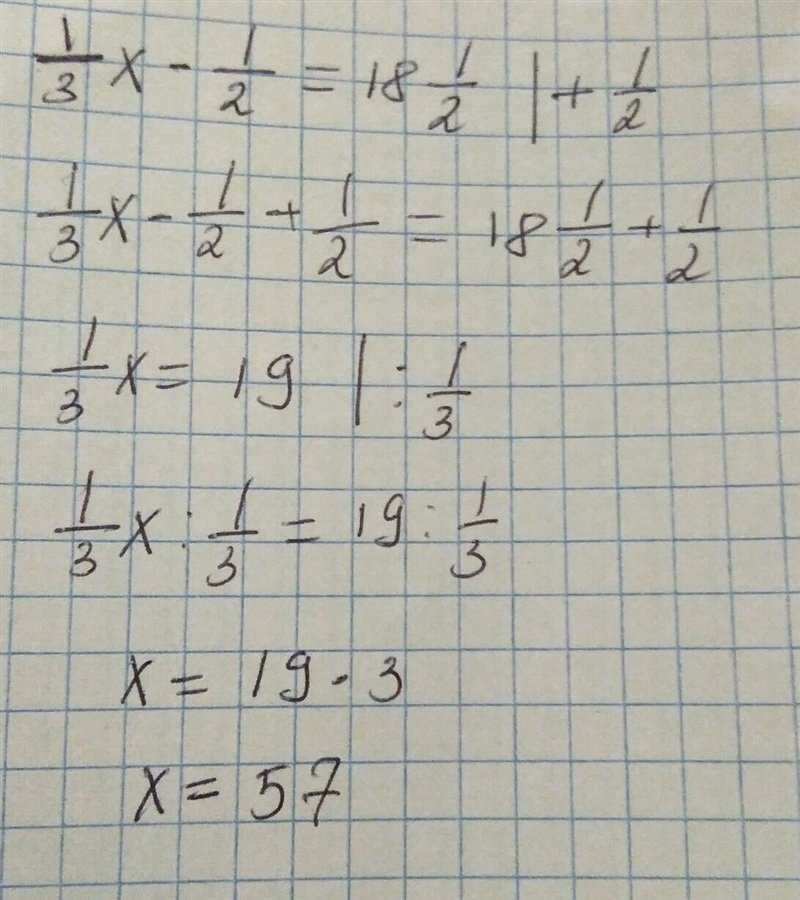 1/3 x - 1/2 = 18 1/2 | + 1/2
1/3 x - 1/2 + 1/2 = 18 1/2 + 1/2
1/3 x = 19 | : 1/3
1/3 x : 1/3 = 19 : 1/3
x = 19 · 3
x = 57